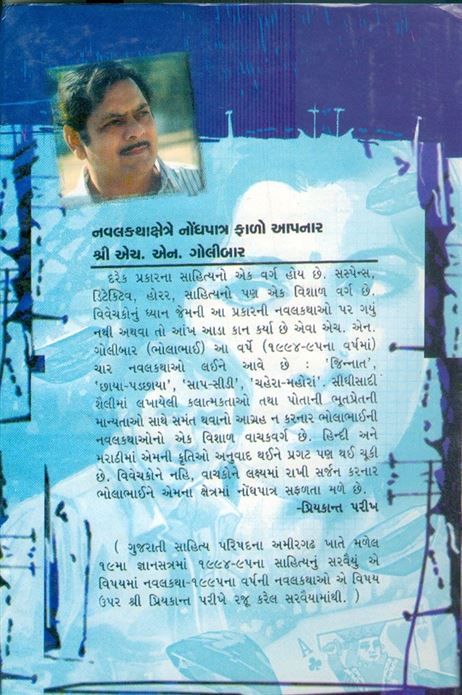 નવલકથાક્ષેત્રે નોંધપાત્ર ફાળો આપનાર
શ્રી એચ. એન. ગોલીબાર
દરેક પ્રકારના સાહિત્યનો એક વર્ગ હોય છે. સસ્પેન્સ,
ડિટેક્ટિવ, હોરર, સાહિત્યનો પણ એક વિશાળ વર્ગ છે.
વિવેચકોનું ધ્યાન જેમની આ પ્રકારની નવલકથાઓ પર ગયું
નથી અથવા તો આંખ આડા કાન કર્યા છે એવા એચ. એન.
ગોલીબાર (ભોલાભાઈ) આ વર્ષે (૧૯૯૪-૯૫ના વર્ષમાં)
ચાર નવલકથાઓ લઈને આવે છે : 'જિન્નાત',
'છાયા-પડછાયા', 'સાપ-સીડી', 'ચહેરા-મહોરાં'. સીધીસાદી
શૈલીમાં લખાયેલી કલાત્મકતાઓ તથા પોતાની ભૂતપ્રેતની
માન્યતાઓ સાથે સમંત થવાનો આગ્રહ ન કરનાર ભોલાભાઈની
નવલકથાઓનો એક વિશાળ વાચકવર્ગ છે. હિન્દી અને
મરાઠીમાં એમની કૃતિઓ અનુવાદ થઈને પ્રગટ પણ થઈ ચૂકી
છે. વિવેચકોને નહિ, વાચકોને લક્ષ્યમાં રાખી સર્જન કરનાર
ભોલાભાઈને એમના ક્ષેત્રમાં નોંધપાત્ર સફળતા મળે છે.
-પ્રિયકાન્ત પરીખ
( ગુજરાતી સાહિત્ય પરિષદના અમીરગઢ ખાતે મળેલ
૧૯મા જ્ઞાનસત્રમાં ૧૯૯૪-૯૫ના સાહિત્યનું સરવૈયું એ
વિષયમાં નવલકથા-૧૯૯૫ના વર્ષની નવલકથાઓ એ વિષય
ઉપર શ્રી પ્રિયકાન્ત પરીખે રજૂ કરેલ સરવૈયામાંથી. )
A
K